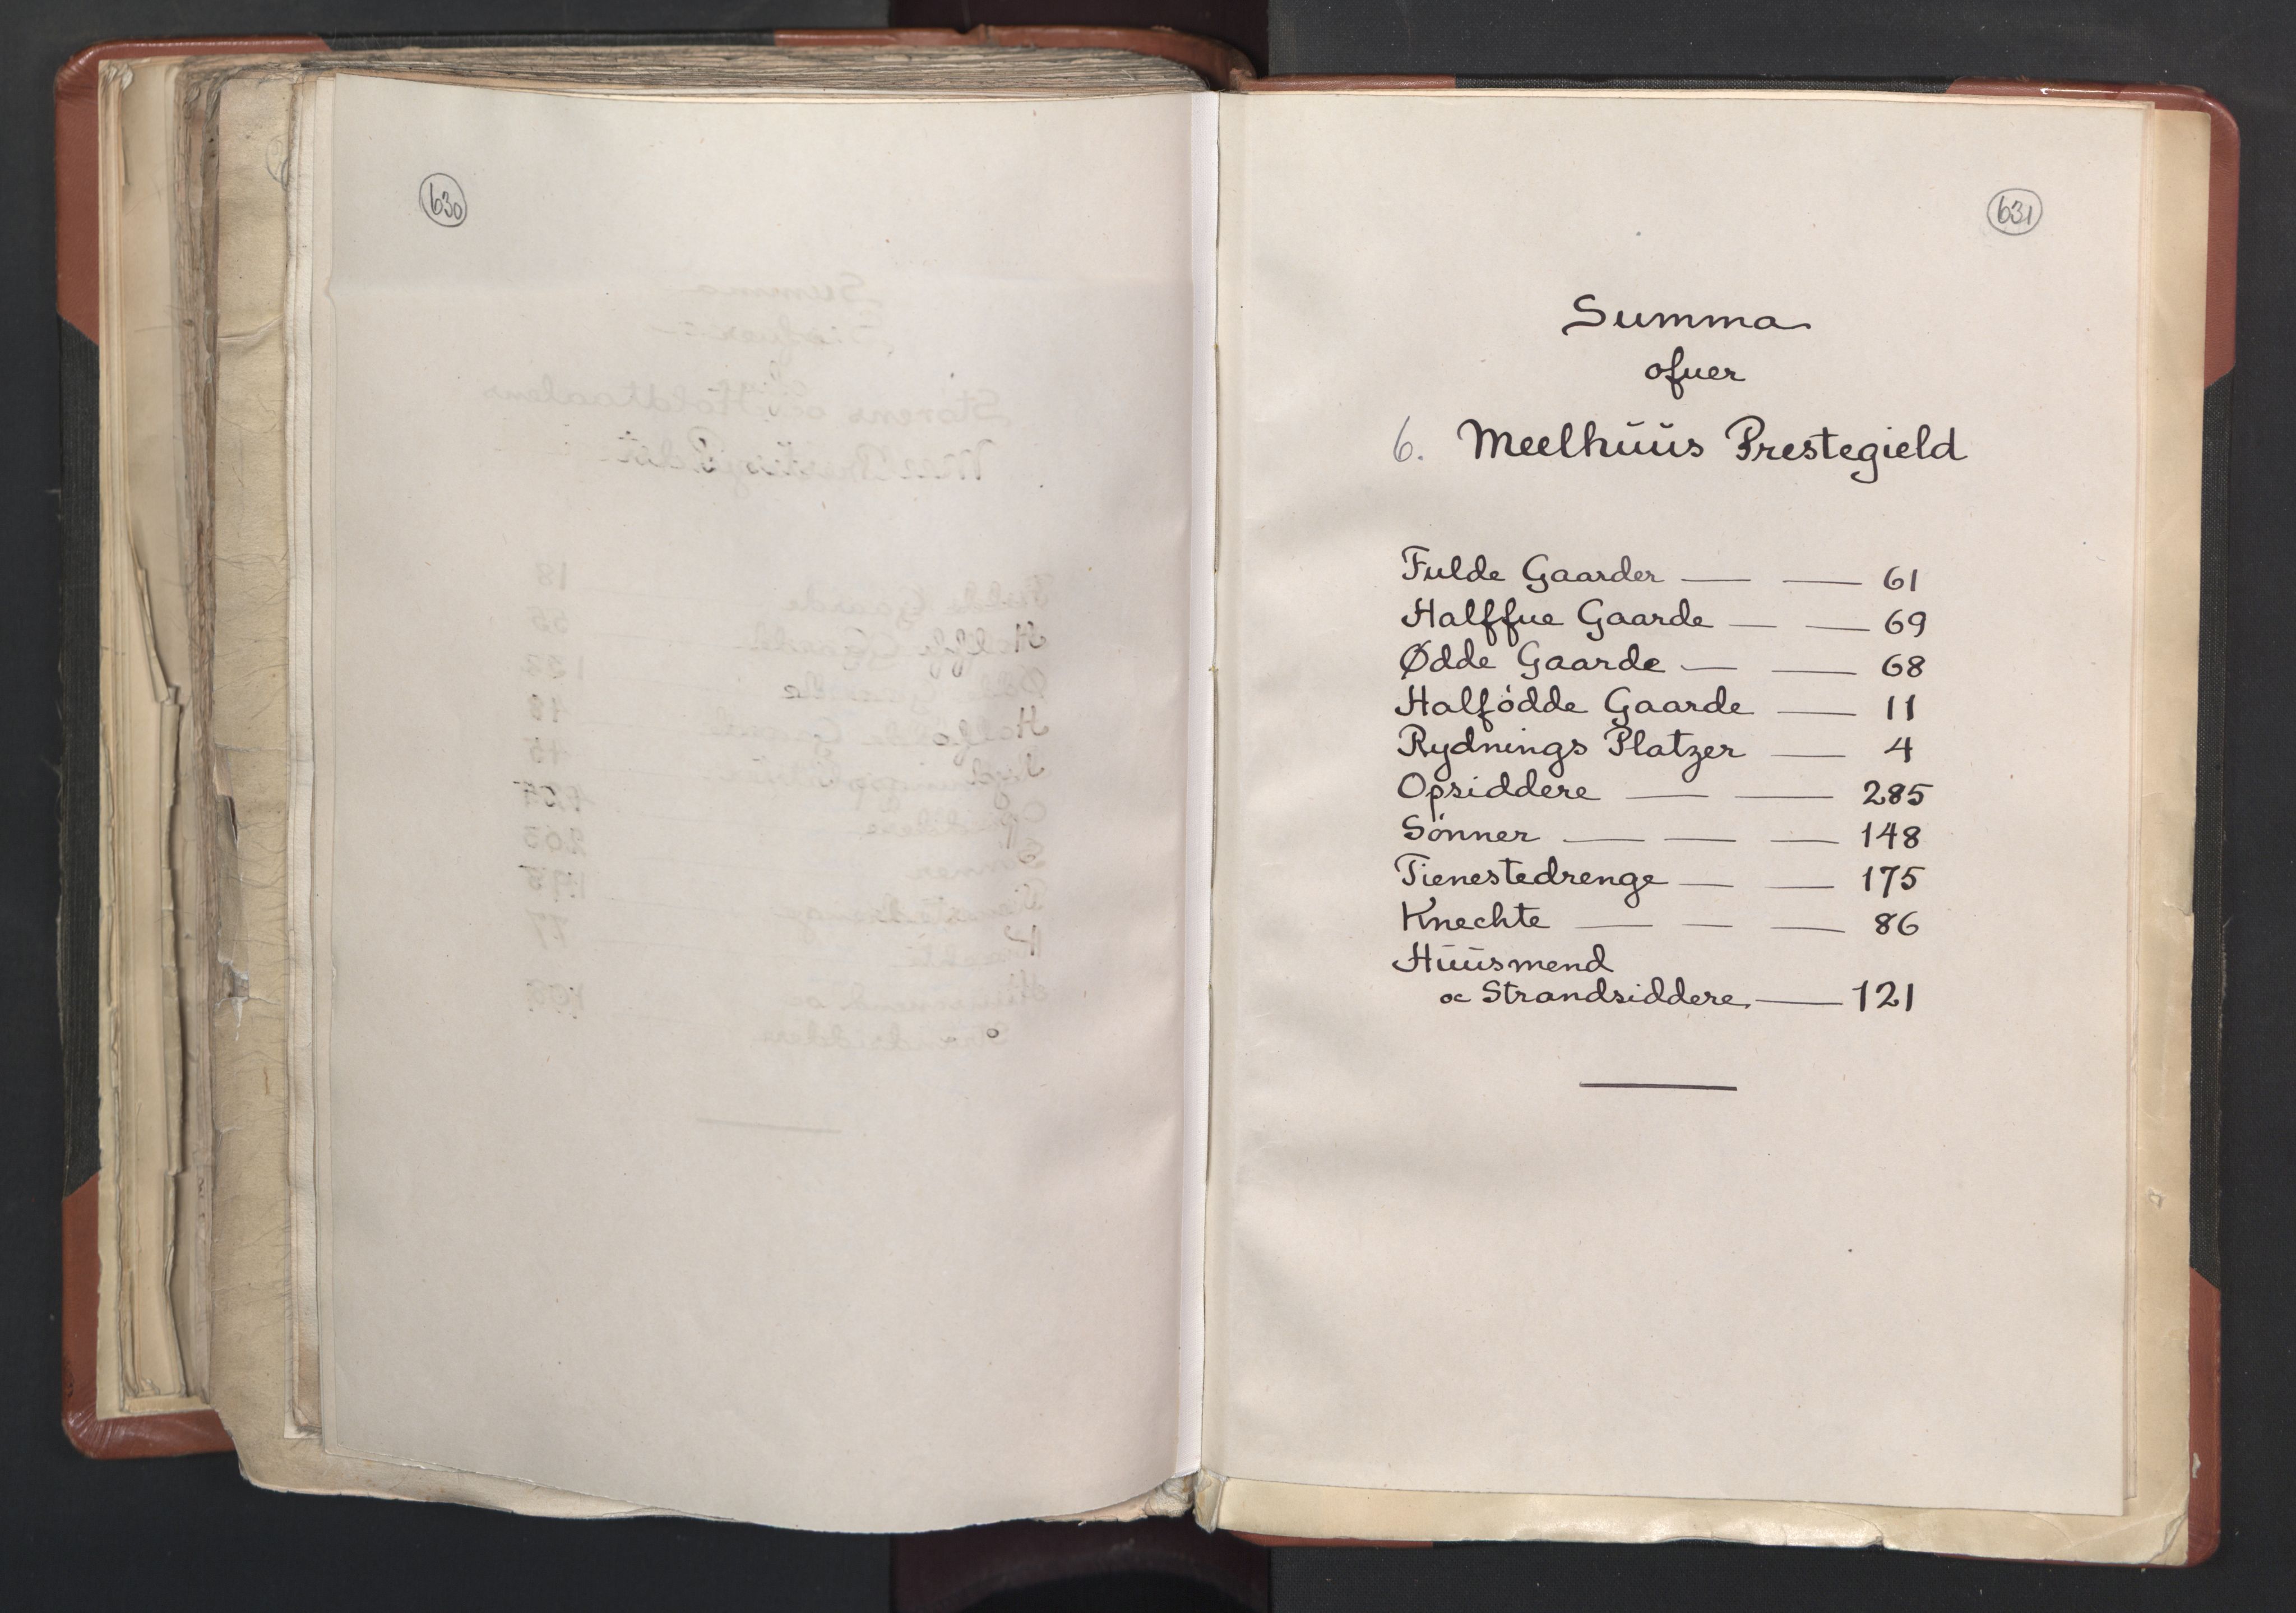 630
631
Summa
ofuer
6. Meelhüüs Prestegield
Fulde Gaarder — — 61
Halffue Gaarde — — 69
Ødde Gaarde — — 68
Halfödde Gaarde — 11
Rydnings Platzer — 4
Opsiddere — — 285
Sönner — — — 148
Tienestedrenge — — 175
Knechte — — — 86
Hüüsmend
oc Strandsiddere — 121